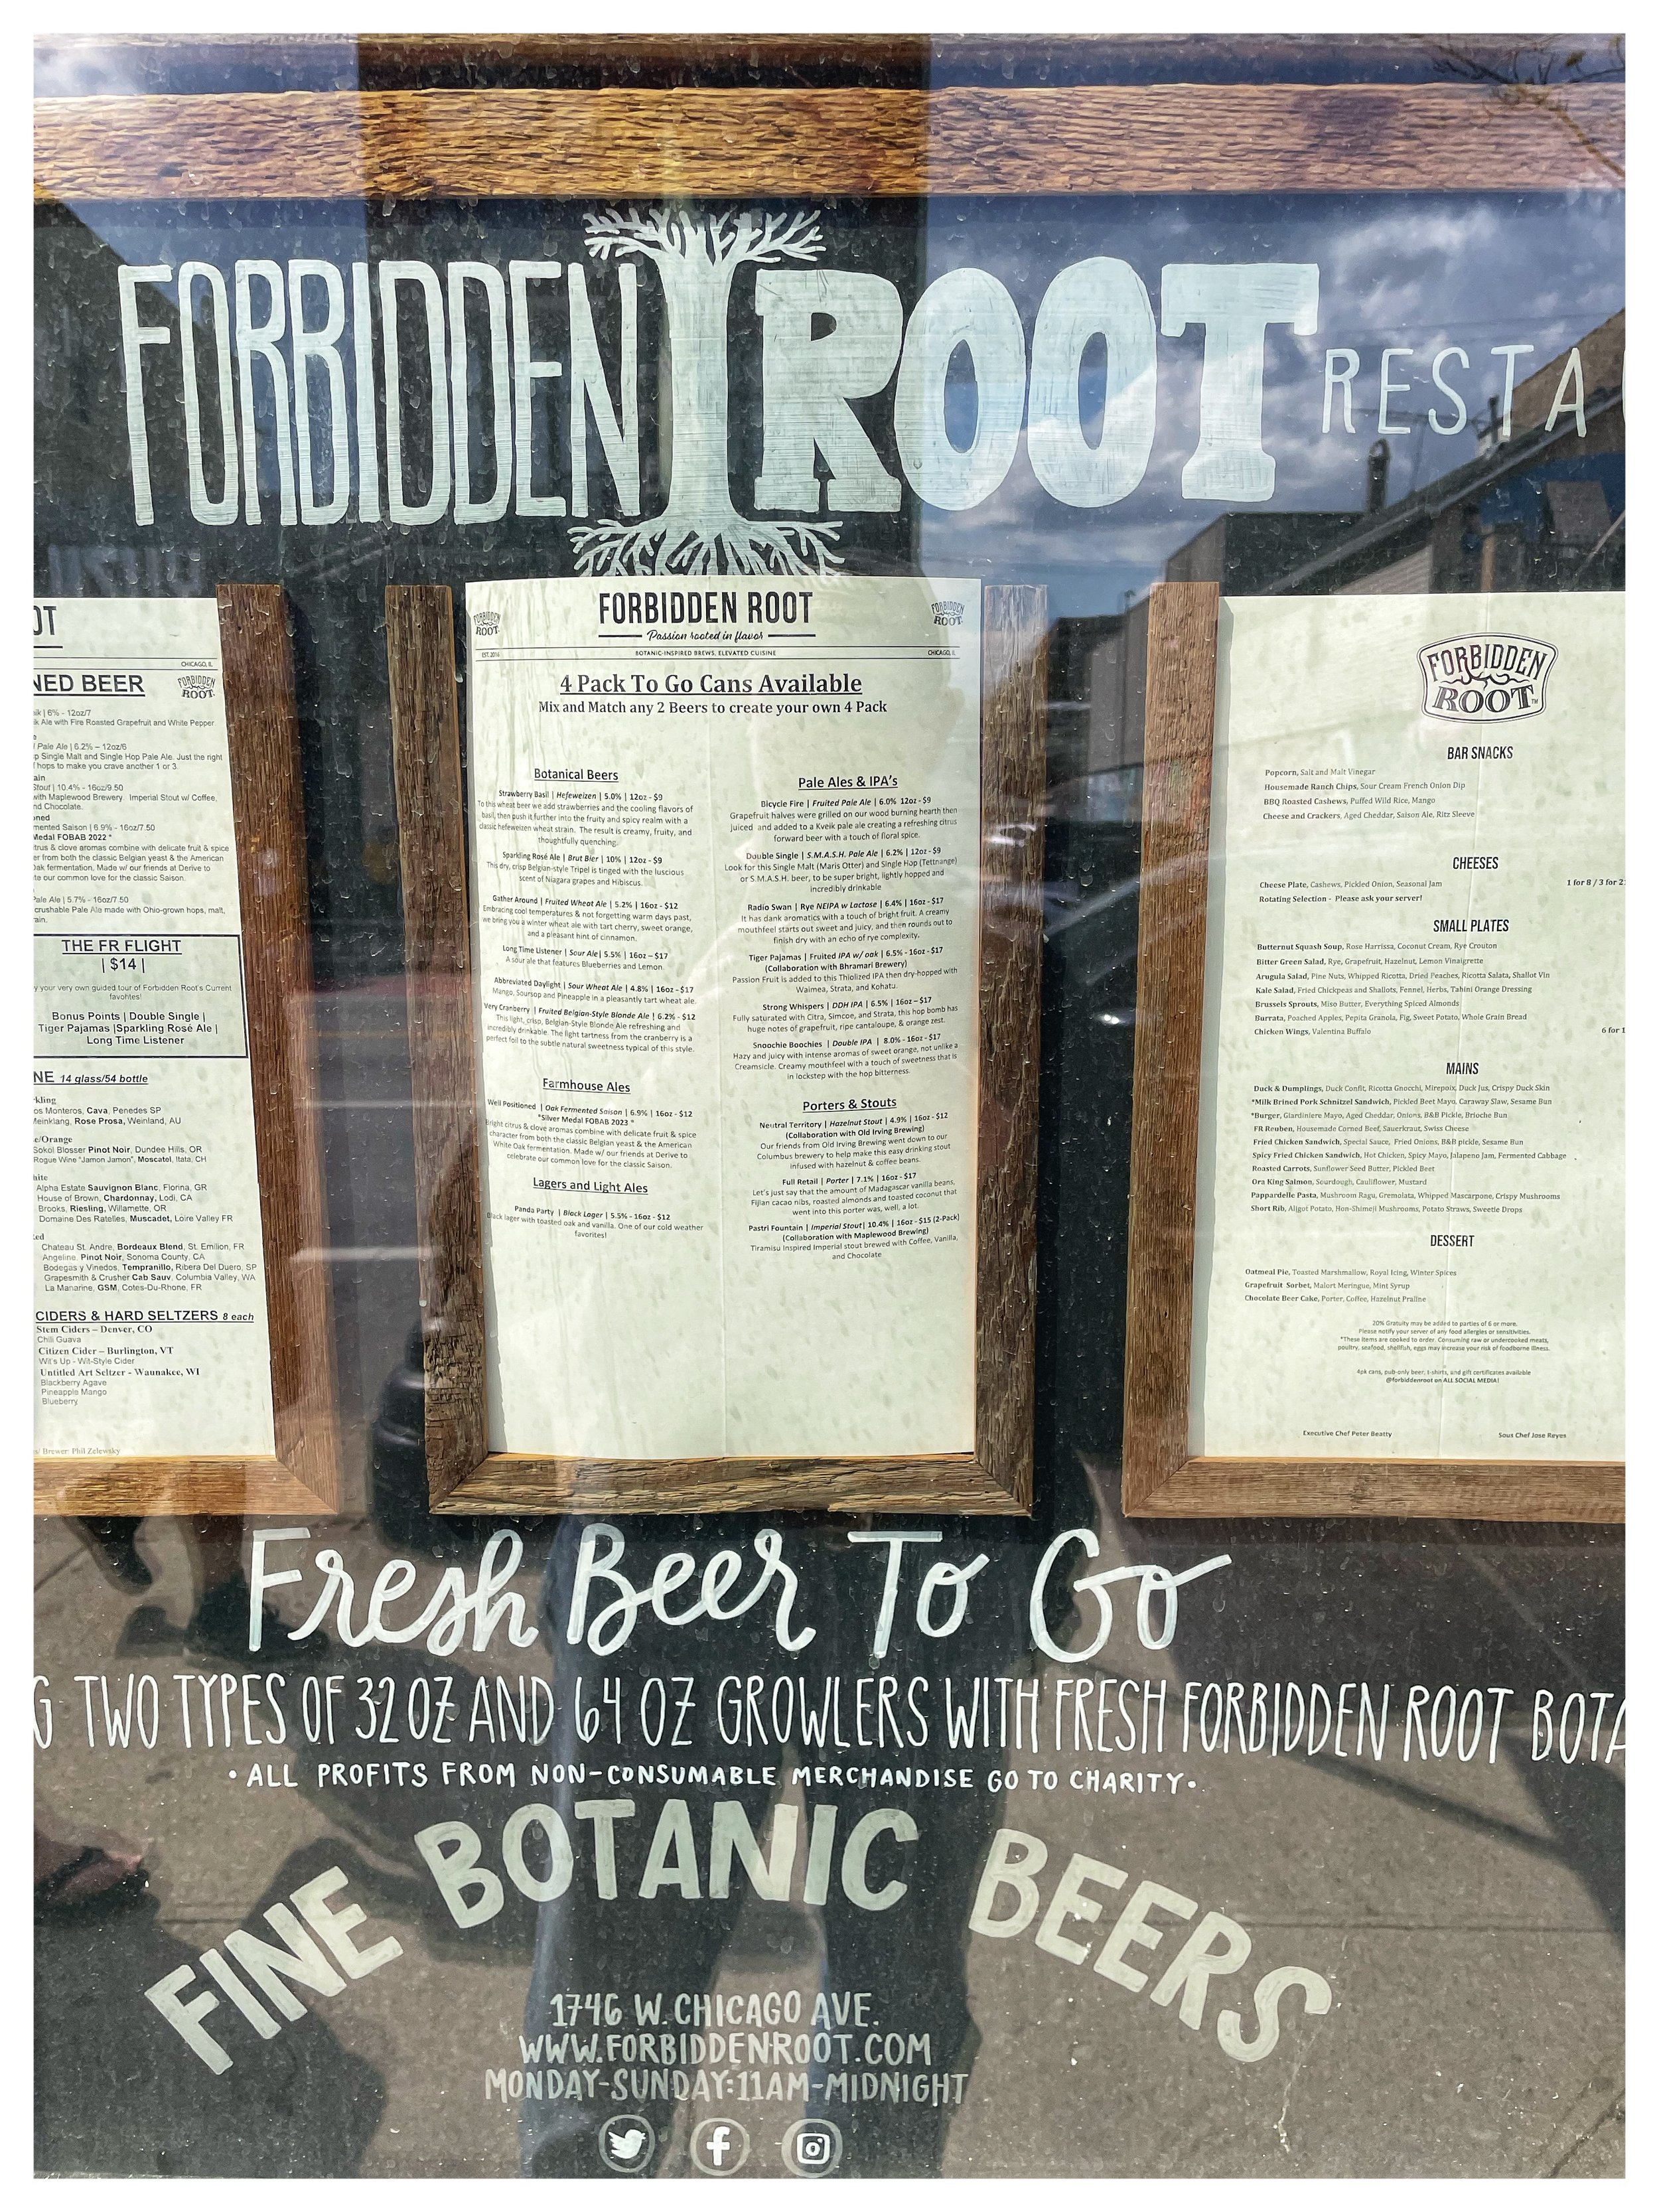 FORBIDDEN ROOT RESTA
OT
CHICAGO, IL
NED BEER
FORBIDDEN
ROOT
| 6% - 12oz/7
Ale with Fire Roasted Grapefruit and White Pepper
Pale Ale | 6.2% – 12oz/6
Single Malt and Single Hop Pale Ale. Just the right
hops to make you crave another 1 or 3.
Stout | 10.4% - 16oz/9.50
with Maplewood Brewery. Imperial Stout w/ Coffee,
nd Chocolate.
mented Saison | 6.9% - 16oz/7.50
Medal FOBAB 2022 *
trus & clove aromas combine with delicate fruit & spice
er from both the classic Belgian yeast & the American
Oak fermentation. Made w/ our friends at Derive to
te our common love for the classic Saison.
Pale Ale | 5.7% - 16oz/7.50
crushable Pale Ale made with Ohio-grown hops, malt,
THE FR FLIGHT
| $14 |
y your very own guided tour of Forbidden Root's Current
favorites!
Bonus Points | Double Single |
Tiger Pajamas |Sparkling Rosé Ale |
Long Time Listener
NE 14 glass/54 bottle
os Monteros, Cava, Penedes SP
Meinklang, Rose Prosa, Weinland, AU
e/Orange
Sokol Blosser Pinot Noir, Dundee Hills, OR
Rogue Wine "Jamon Jamon", Moscatel, Itata, CH
Alpha Estate Sauvignon Blanc, Florina, GR
House of Brown, Chardonnay, Lodi, CA
Brooks, Riesling, Willamette, OR
Domaine Des Ratelles, Muscadet, Loire Valley FR
Chateau St. Andre, Bordeaux Blend, St. Emilion, FR
Angeline, Pinot Noir, Sonoma County, CA
Bodegas y Vinedos, Tempranillo, Ribera Del Duero, SP
Grapesmith & Crusher Cab Sauv, Columbia Valley, WA
La Manarine, GSM, Cotes-Du-Rhone, FR
CIDERS & HARD SELTZERS 8 each
Stem Ciders – Denver, CO
Chili Guava
Citizen Cider – Burlington, VT
Wit's Up - Wit-Style Cider
Untitled Art Seltzer - Waunakee, WI
Blackberry Agave
Pineapple Mango
Blueberry
Brewer: Phil Zelewsky
FORBIDDEN ROOT
FORBIDDEN ROOT
Passion rooted in flavor
FORBIDDEN ROOT
EST. 2016 BOTANIC-INSPIRED BREWS, ELEVATED CUISINE CHICAGO, IL
4 Pack To Go Cans Available
Mix and Match any 2 Beers to create your own 4 Pack
Botanical Beers
Strawberry Basil | Hefeweizen | 5.0% | 12oz - $9
To this wheat beer we add strawberries and the cooling flavors of
basil, then push it further into the fruity and spicy realm with a
classic hefeweizen wheat strain. The result is creamy, fruity, and
thoughtfully quenching.
Sparkling Rosé Ale | Brut Bier | 10% | 12oz - $9
This dry, crisp Belgian-style Tripel is tinged with the luscious
scent of Niagara grapes and Hibiscus.
Gather Around | Fruited Wheat Ale | 5.2% | 16oz - $12
Embracing cool temperatures & not forgetting warm days past,
we bring you a winter wheat ale with tart cherry, sweet orange,
and a pleasant hint of cinnamon.
Long Time Listener | Sour Ale| 5.5% | 16oz – $17
A sour ale that features Blueberries and Lemon.
Abbreviated Daylight | Sour Wheat Ale | 4.8% | 16oz - $17
Mango, Soursop and Pineapple in a pleasantly tart wheat ale.
Very Cranberry | Fruited Belgian-Style Blonde Ale | 6.2% - $12
This light, crisp, Belgian-Style Blonde Ale refreshing and
incredibly drinkable. The light tartness from the cranberry is a
perfect foil to the subtle natural sweetness typical of this style.
Farmhouse Ales
Well Positioned | Oak Fermented Saison | 6.9% | 16oz - $12
*Silver Medal FOBAB 2023 *
Bright citrus & clove aromas combine with delicate fruit & spice
character from both the classic Belgian yeast & the American
White Oak fermentation. Made w/ our friends at Derive to
celebrate our common love for the classic Saison.
Lagers and Light Ales
Panda Party | Black Lager | 5.5% - 16oz - $12
Black lager with toasted oak and vanilla. One of our cold weather
favorites!
Pale Ales & IPA's
Bicycle Fire | Fruited Pale Ale | 6.0% 12oz - $9
Grapefruit halves were grilled on our wood burning hearth then
juiced and added to a Kveik pale ale creating a refreshing citrus
forward beer with a touch of floral spice.
Double Single | S.M.A.S.H. Pale Ale | 6.2% | 12oz -$9
Look for this Single Malt (Maris Otter) and Single Hop (Tettnange)
or S.M.A.S.H. beer, to be super bright, lightly hopped and
incredibly drinkable
Radio Swan | Rye NEIPA w Lactose | 6.4% | 16oz - $17
It has dank aromatics with a touch of bright fruit. A creamy
mouthfeel starts out sweet and juicy, and then rounds out to
finish dry with an echo of rye complexity.
Tiger Pajamas | Fruited IPA w/ oak | 6.5% - 16oz - $17
(Collaboration with Bhramari Brewery)
Passion Fruit is added to this Thiolized IPA then dry-hopped with
Waimea, Strata, and Kohatu.
Strong Whispers | DDH IPA | 6.5% | 16oz – $17
Fully saturated with Citra, Simcoe, and Strata, this hop bomb has
huge notes of grapefruit, ripe cantaloupe, & orange zest.
Snoochie Boochies | Double IPA | 8.0% - 16oz - $17
Hazy and juicy with intense aromas of sweet orange, not unlike a
Creamsicle. Creamy mouthfeel with a touch of sweetness that is
in lockstep with the hop bitterness.
Porters & Stouts
Neutral Territory | Hazelnut Stout | 4.9% | 16oz - $12
(Collaboration with Old Irving Brewing)
Our friends from Old Irving Brewing went down to our
Columbus brewery to help make this easy drinking stout
infused with hazelnut & coffee beans.
Full Retail | Porter | 7.1% | 16oz - $17
Let's just say that the amount of Madagascar vanilla beans,
Fijian cacao nibs, roasted almonds and toasted coconut that
went into this porter was, well, a lot.
Pastri Fountain | Imperial Stout| 10.4% | 16oz - $15 (2-Pack)
(Collaboration with Maplewood Brewery)
Tiramisu Inspired imperial stout brewed with Coffee, Vanilla,
and Chocolate
FORBIDDEN
ROOT TM
BAR SNACKS
Popcorn, Salt and Malt Vinegar
Housemade Ranch Chips, Sour Cream French Onion Dip
BBQ Roasted Cashews, Puffed Wild Rice, Mango
Cheese and Crackers, Aged Cheddar, Saison Ale, Ritz Sleeve
CHEESES
Cheese Plate, Cashews, Pickled Onion, Seasonal Jam 1 for 8 / 3 for 2
Rotating Selection - Please ask your server!
SMALL PLATES
Butternut Squash Soup, Rose Harrissa, Coconut Cream, Rye Crouton
Bitter Green Salad, Rye, Grapefruit, Hazelnut, Lemon Vinaigrette
Arugula Salad, Pine Nuts, Whipped Ricotta, Dried Peaches, Ricotta Salata, Shallot Vin
Kale Salad, Fried Chickpeas and Shallots, Fennel, Herbs, Tahini Orange Dressing
Brussels Sprouts, Miso Butter, Everything Spiced Almonds
Burrata, Poached Apples, Pepita Granola, Fig, Sweet Potato, Whole Grain Bread
Chicken Wings, Valentina Buffalo 6 for 1
MAINS
Duck & Dumplings, Duck Confit, Ricotta Gnocchi, Mirepoix, Duck Jus, Crispy Duck Skin
*Milk Brined Pork Schnitzel Sandwich, Pickled Beet Mayo, Caraway Slaw, Sesame Bun
*Burger, Giardiniere Mayo, Aged Cheddar, Onions, B&B Pickle, Brioche Bun
FR Reuben, Housemade Corned Beef, Sauerkraut, Swiss Cheese
Fried Chicken Sandwich, Special Sauce, Fried Onions, B&B pickle, Sesame Bun
Spicy Fried Chicken Sandwich, Hot Chicken, Spicy Mayo, Jalapeno Jam, Fermented Cabbage
Roasted Carrots, Sunflower Seed Butter, Pickled Beet
Ora King Salmon, Sourdough, Cauliflower, Mustard
Pappardelle Pasta, Mushroom Ragu, Gremolata, Whipped Mascarpone, Crispy Mushrooms
Short Rib, Aligot Potato, Hon-Shimeji Mushrooms, Potato Straws, Sweetie Drops
DESSERT
Oatmeal Pie, Toasted Marshmallow, Royal Icing, Winter Spices
Grapefruit Sorbet, Malort Meringue, Mint Syrup
Chocolate Beer Cake, Porter, Coffee, Hazelnut Praline
20% Gratuity may be added to parties of 6 or more.
Please notify your server of any food allergies or sensitivities.
*These items are cooked to order. Consuming raw or undercooked meats,
poultry, seafood, shellfish, eggs may increase your risk of foodborne illness.
4pk cans, pub-only beer, t-shirts, and gift certificates available
@forbiddenroot on ALL SOCIAL MEDIA!
Executive Chef Peter Beatty Sous Chef Jose Reyes
Fresh Beer To Go
G TWO TYPES OF 32 OZ AND 64 OZ GROWLERS WITH FRESH FORBIDDEN ROOT BOTA
• ALL PROFITS FROM NON-CONSUMABLE MERCHANDISE GO TO CHARITY•
FINE BOTANIC BEERS
1746 W. CHICAGO AVE.
WWW.FORBIDDENROOT.COM
MONDAY-SUNDAY:11AM-MIDNIGHT